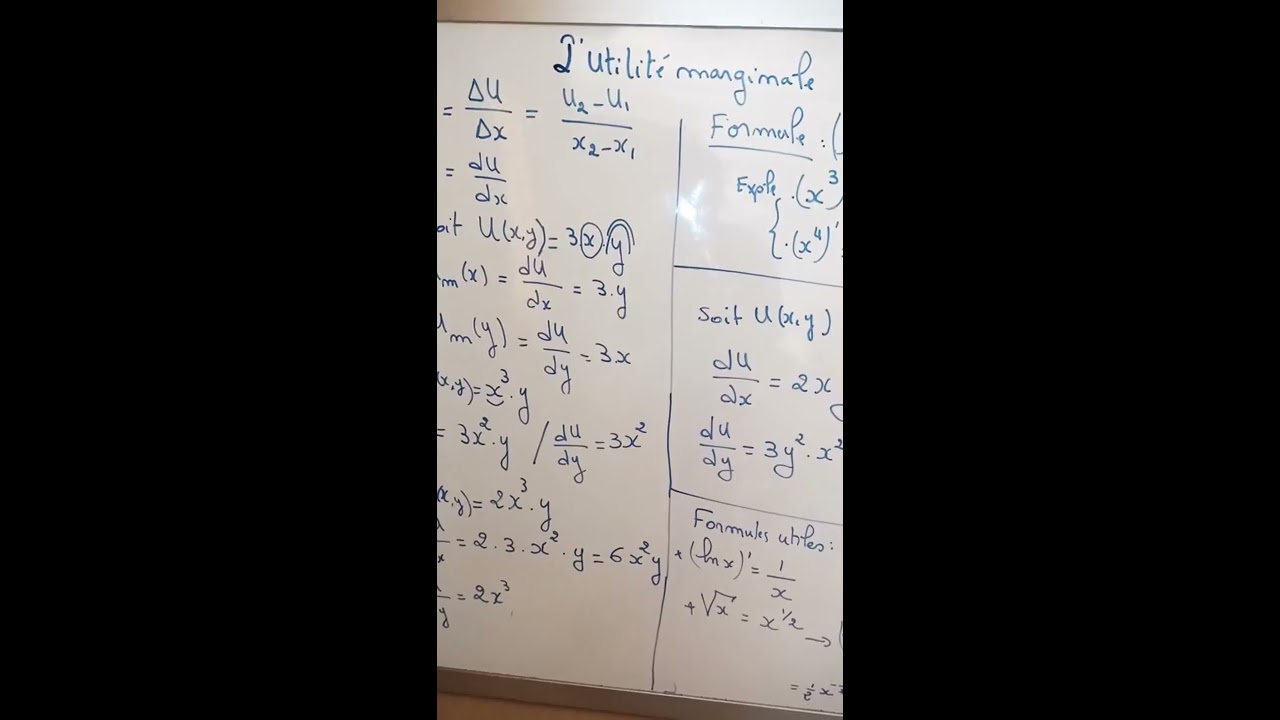 L'utilité marginale
= ΔU/Δx = U₂-U₁/x₂-x₁
= dU/dx
oit U(x,y) = 3x.y
m(x) = dU/dx = 3.y
Um(y) = dU/dy = 3x
(x,y) = x³.y
= 3x².y / dU/dy = 3x²
(x,y) = 2x³.y
= 2.3.x².y = 6x²y
y = 2x³
Formule : (
Exple { .(x³)
.(x⁴)' =
Soit U(x,y)
dU/dx = 2x
dU/dy = 3y².x²
Formules utiles:
+ (ln x)' = 1/x
+ √x = x^1/2 → (
= 1/2 x⁻